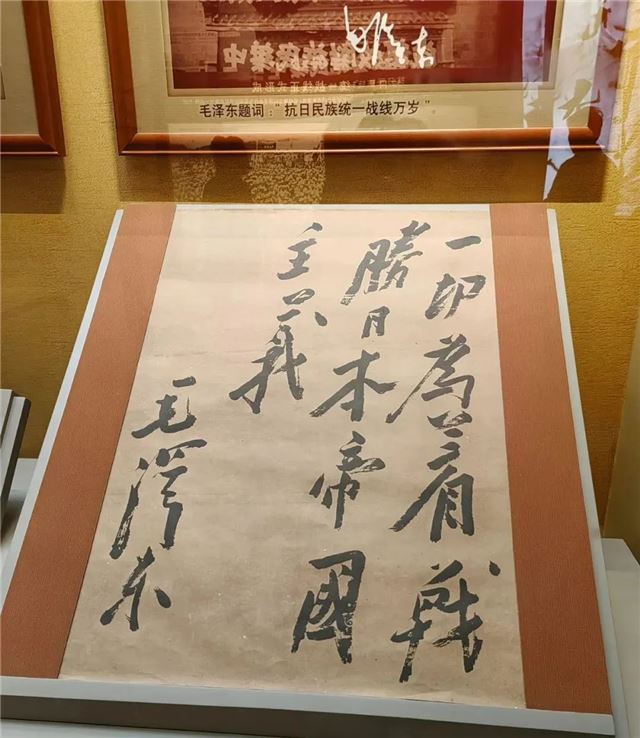 毛泽东题词：“抗日民族统一战线万岁”
一切為着戰
勝日本帝國
主義
毛澤东